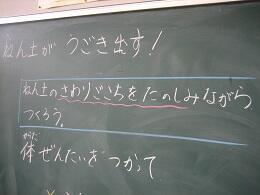 ねん土が うごき出す！
ねん土のさわりごこちをたのしみながら
つくろう。
からだ
体ぜんたいをつかって